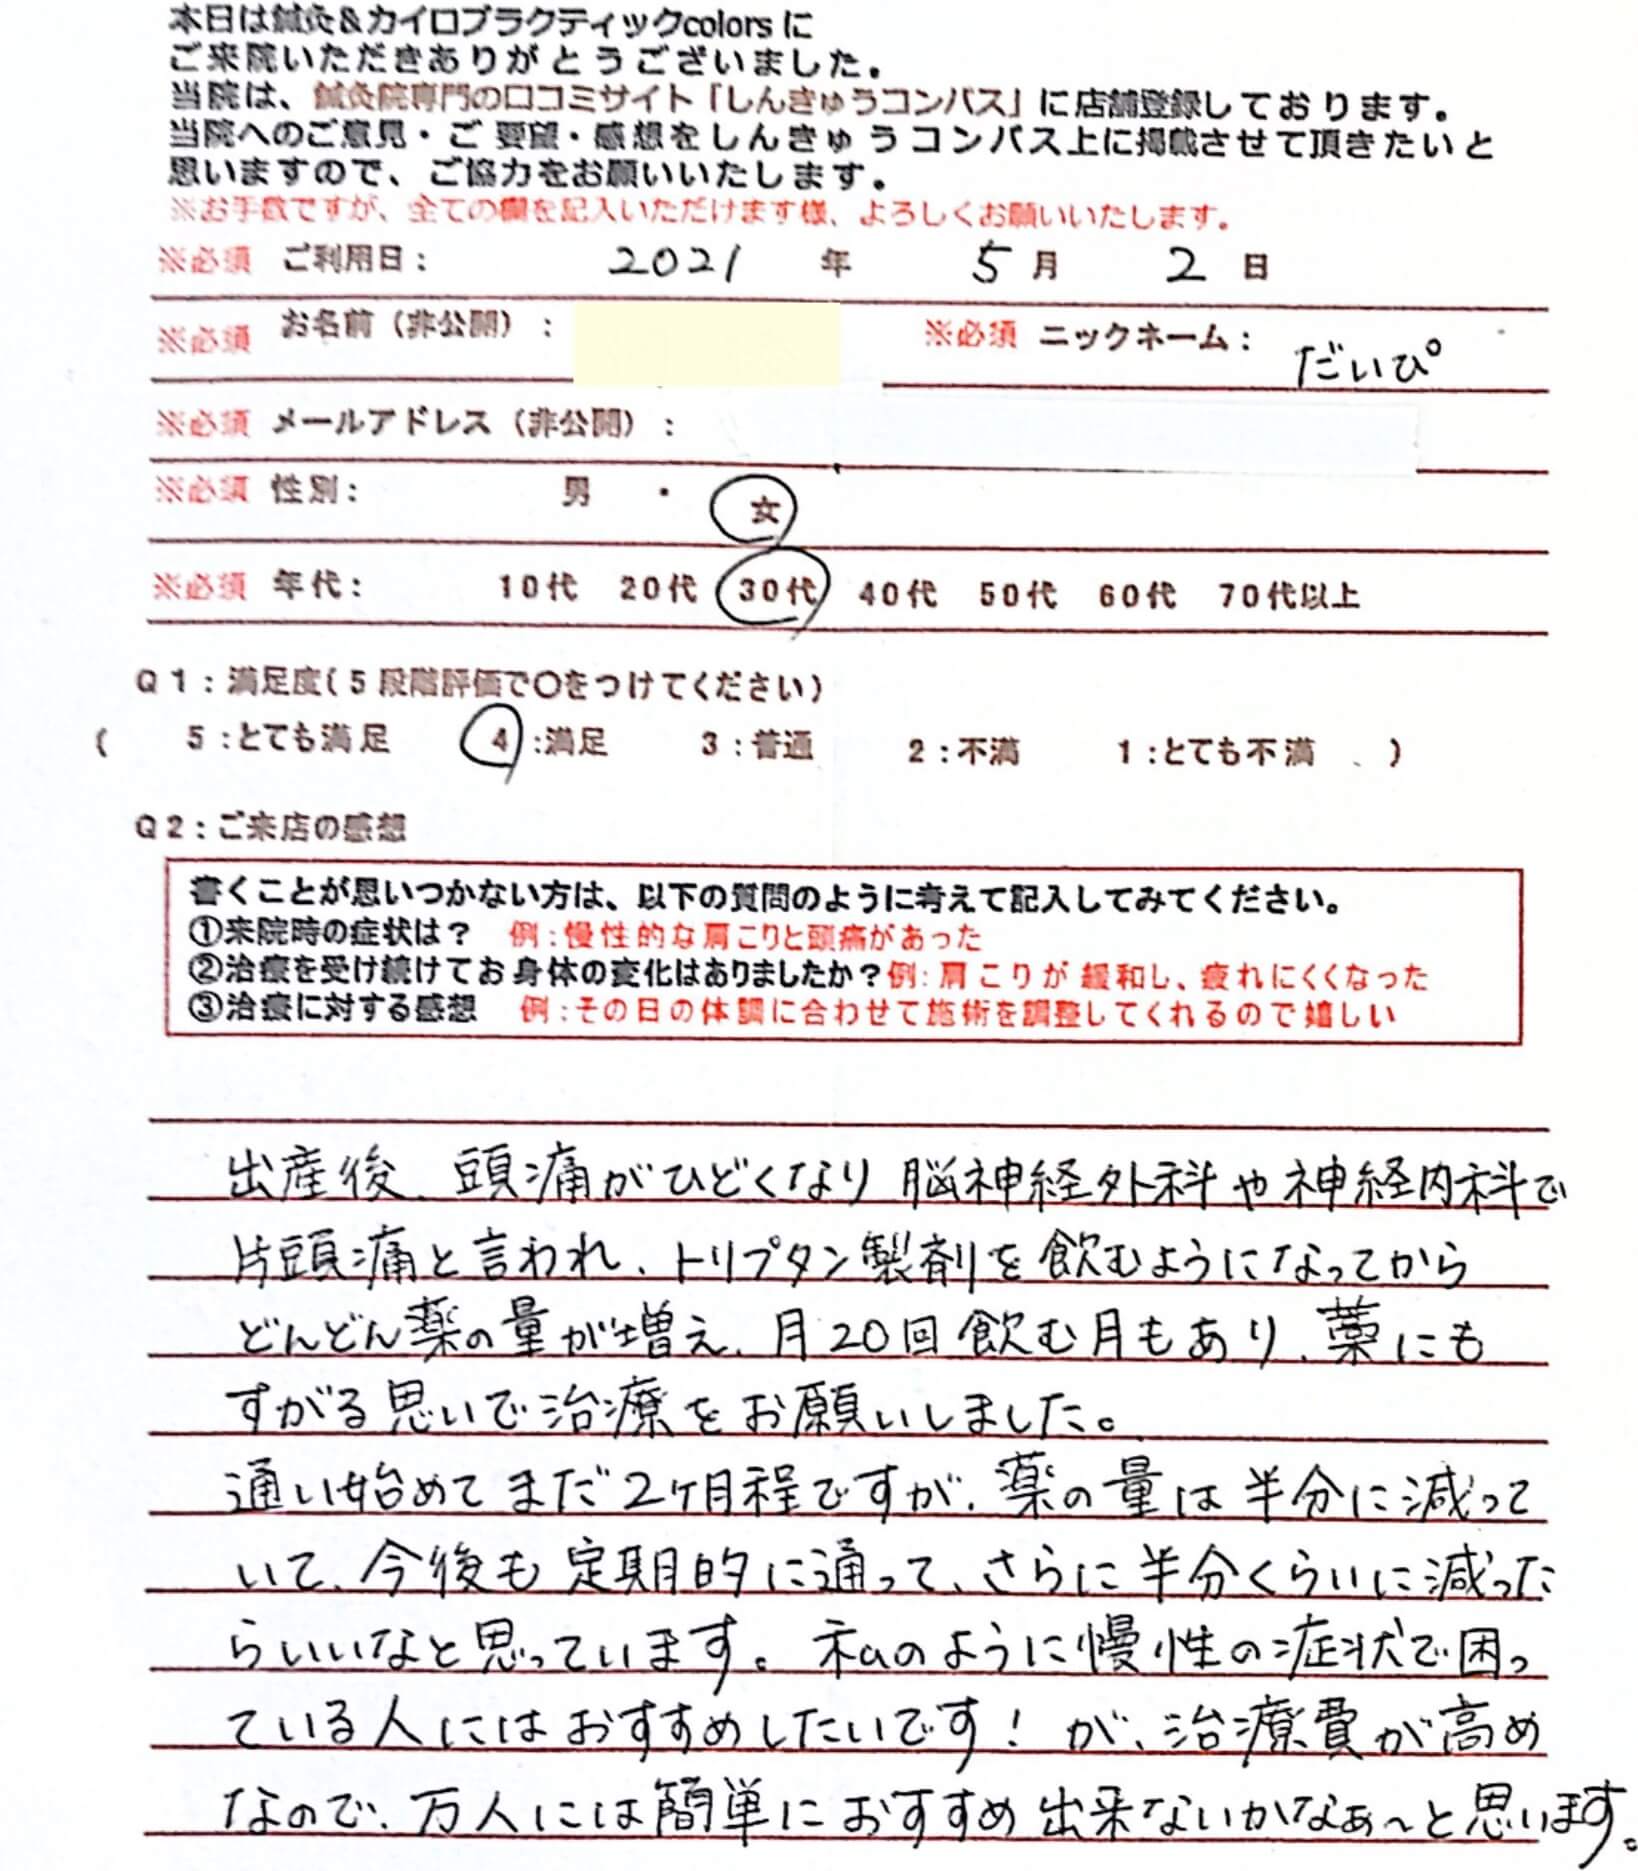 本日は鍼灸&カイロプラクティックcolorsに
ご来院いただきありがとうございました。
当院は、鍼灸院専門の口コミサイト「しんきゅうコンパス」に店舗登録しております。
当院へのご意見・ご要望・感想をしんきゅうコンパス上に掲載させて頂きたいと
思いますので、ご協力をお願いいたします。
※お手数ですが、全ての欄を記入いただけます様、よろしくお願いいたします。
※必須 ご利用日： 2021 年 5 月 2 日
※必須 お名前（非公開）： ※必須 ニックネーム： だいぴ
※必須 メールアドレス（非公開）：
※必須 性別： 男 ・ 女
※必須 年代： 10代 20代 30代 40代 50代 60代 70代以上
Q1：満足度（5段階評価で〇をつけてください）
（ 5：とても満足 4：満足 3：普通 2：不満 1：とても不満 ）
Q2：ご来店の感想
書くことが思いつかない方は、以下の質問のように考えて記入してみてください。
①来院時の症状は？ 例：慢性的な肩こりと頭痛があった
②治療を受け続けてお身体の変化はありましたか？例：肩こりが緩和し、疲れにくくなった
③治療に対する感想 例：その日の体調に合わせて施術を調整してくれるので嬉しい
出産後、頭痛がひどくなり脳神経外科や神経内科で
片頭痛と言われ、トリプタン製剤を飲むようになってから
どんどん薬の量が増え、月20回飲む月もあり、藁にも
すがる思いで治療をお願いしました。
通い始めてまだ2ヶ月程ですが、薬の量は半分に減って
いて、今後も定期的に通って、さらに半分くらいに減った
らいいなと思っています。私のように慢性の症状で困っ
ている人にはおすすめしたいです！が、治療費が高め
なので、万人には簡単におすすめ出来ないかなぁ～と思います。